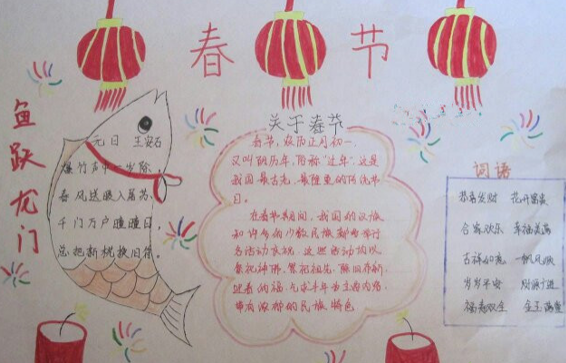 春节
鱼跃龙门
元日 王安石
爆竹声中一岁除，
春风送暖入屠苏，
千门万户曈曈日，
总把新桃换旧符。
关于春节
春节，农历正月初一，
又叫阴历年，俗称“过年”，这是
我国最古老、最隆重的传统节
日。
在春节期间，我国的汉族
和许多的少数民族都要举行
各活动庆祝，这些活动均以
祭祀神佛、祭祀祖先、除旧布新、
福、乞求丰年为主要内容，
带有浓郁的民族特色
词语
恭喜发财 花开富贵
合家欢乐 幸福美满
吉祥如意 一帆风顺
岁岁平安 财源广进
福寿双全 金玉满堂